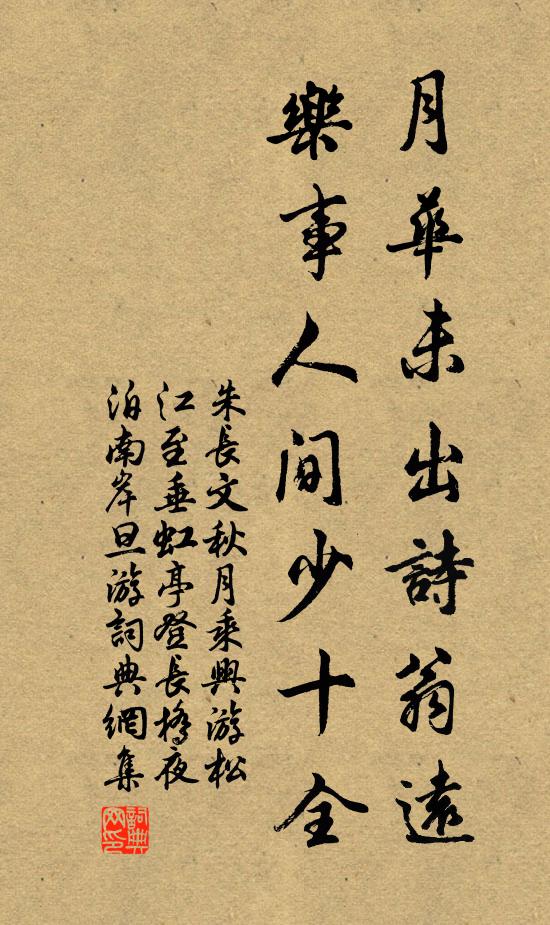 月華未出詩翁遠
樂事人間少十全
朱長文秋月乘興游松
江至垂虹亭登長橋夜
泊南岸旦游詞典網集
詞典
网印